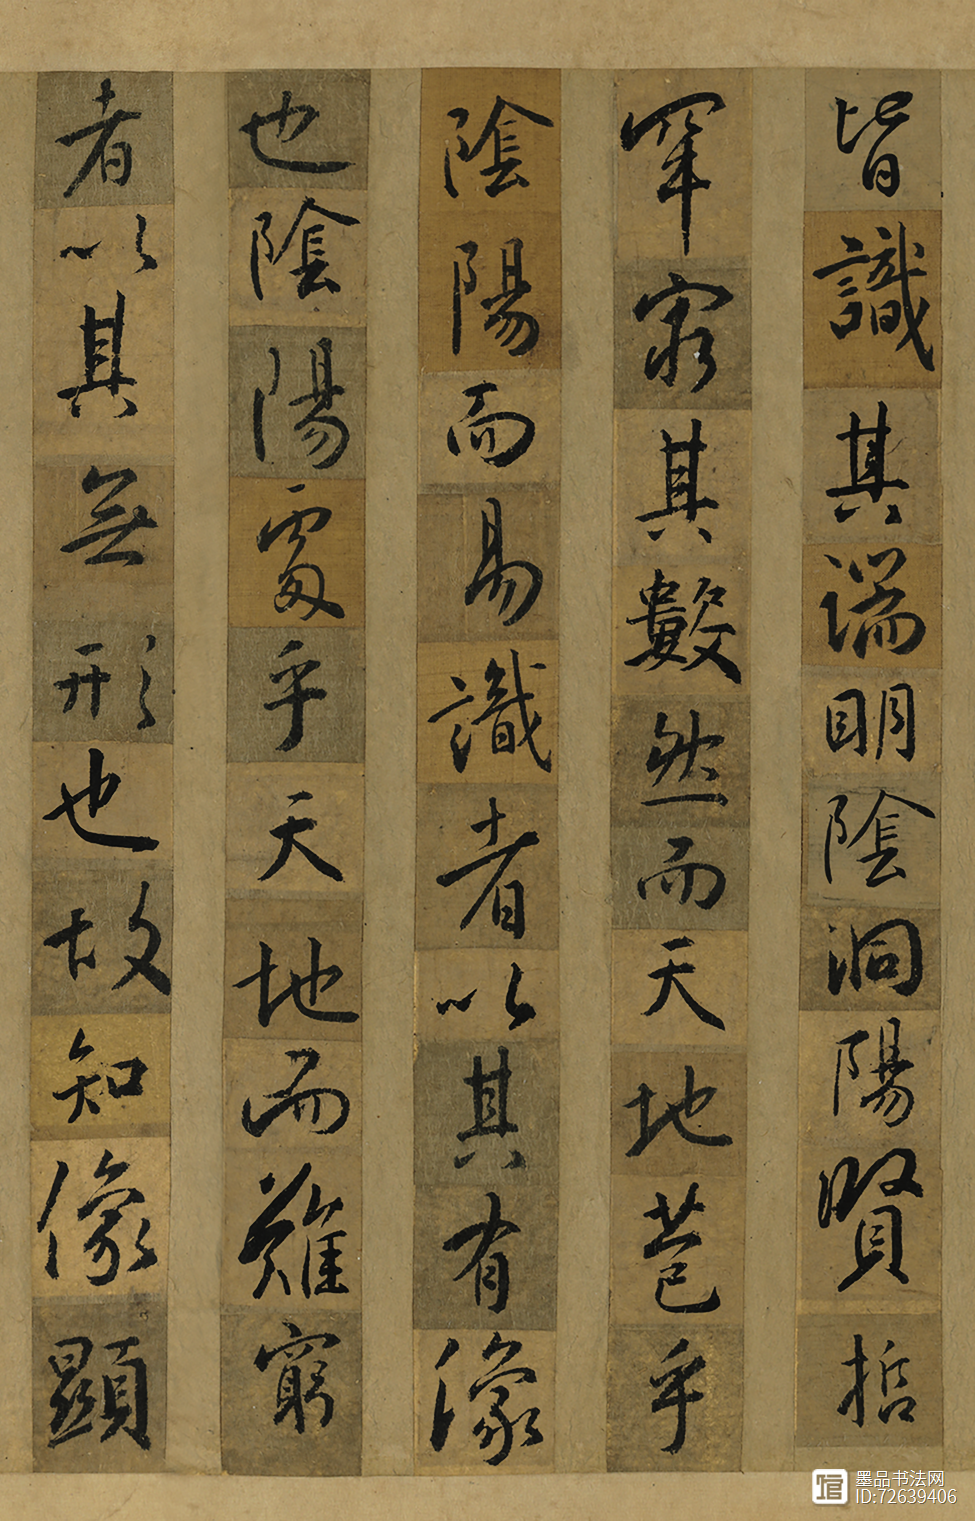 皆識其端明陰洞陽賢哲
罕窮其數然而天地苞乎
陰陽而易識者以其有像
也陰陽處乎天地而難窮
者以其無形也故知像顯
墨品书法网
ID:72639406